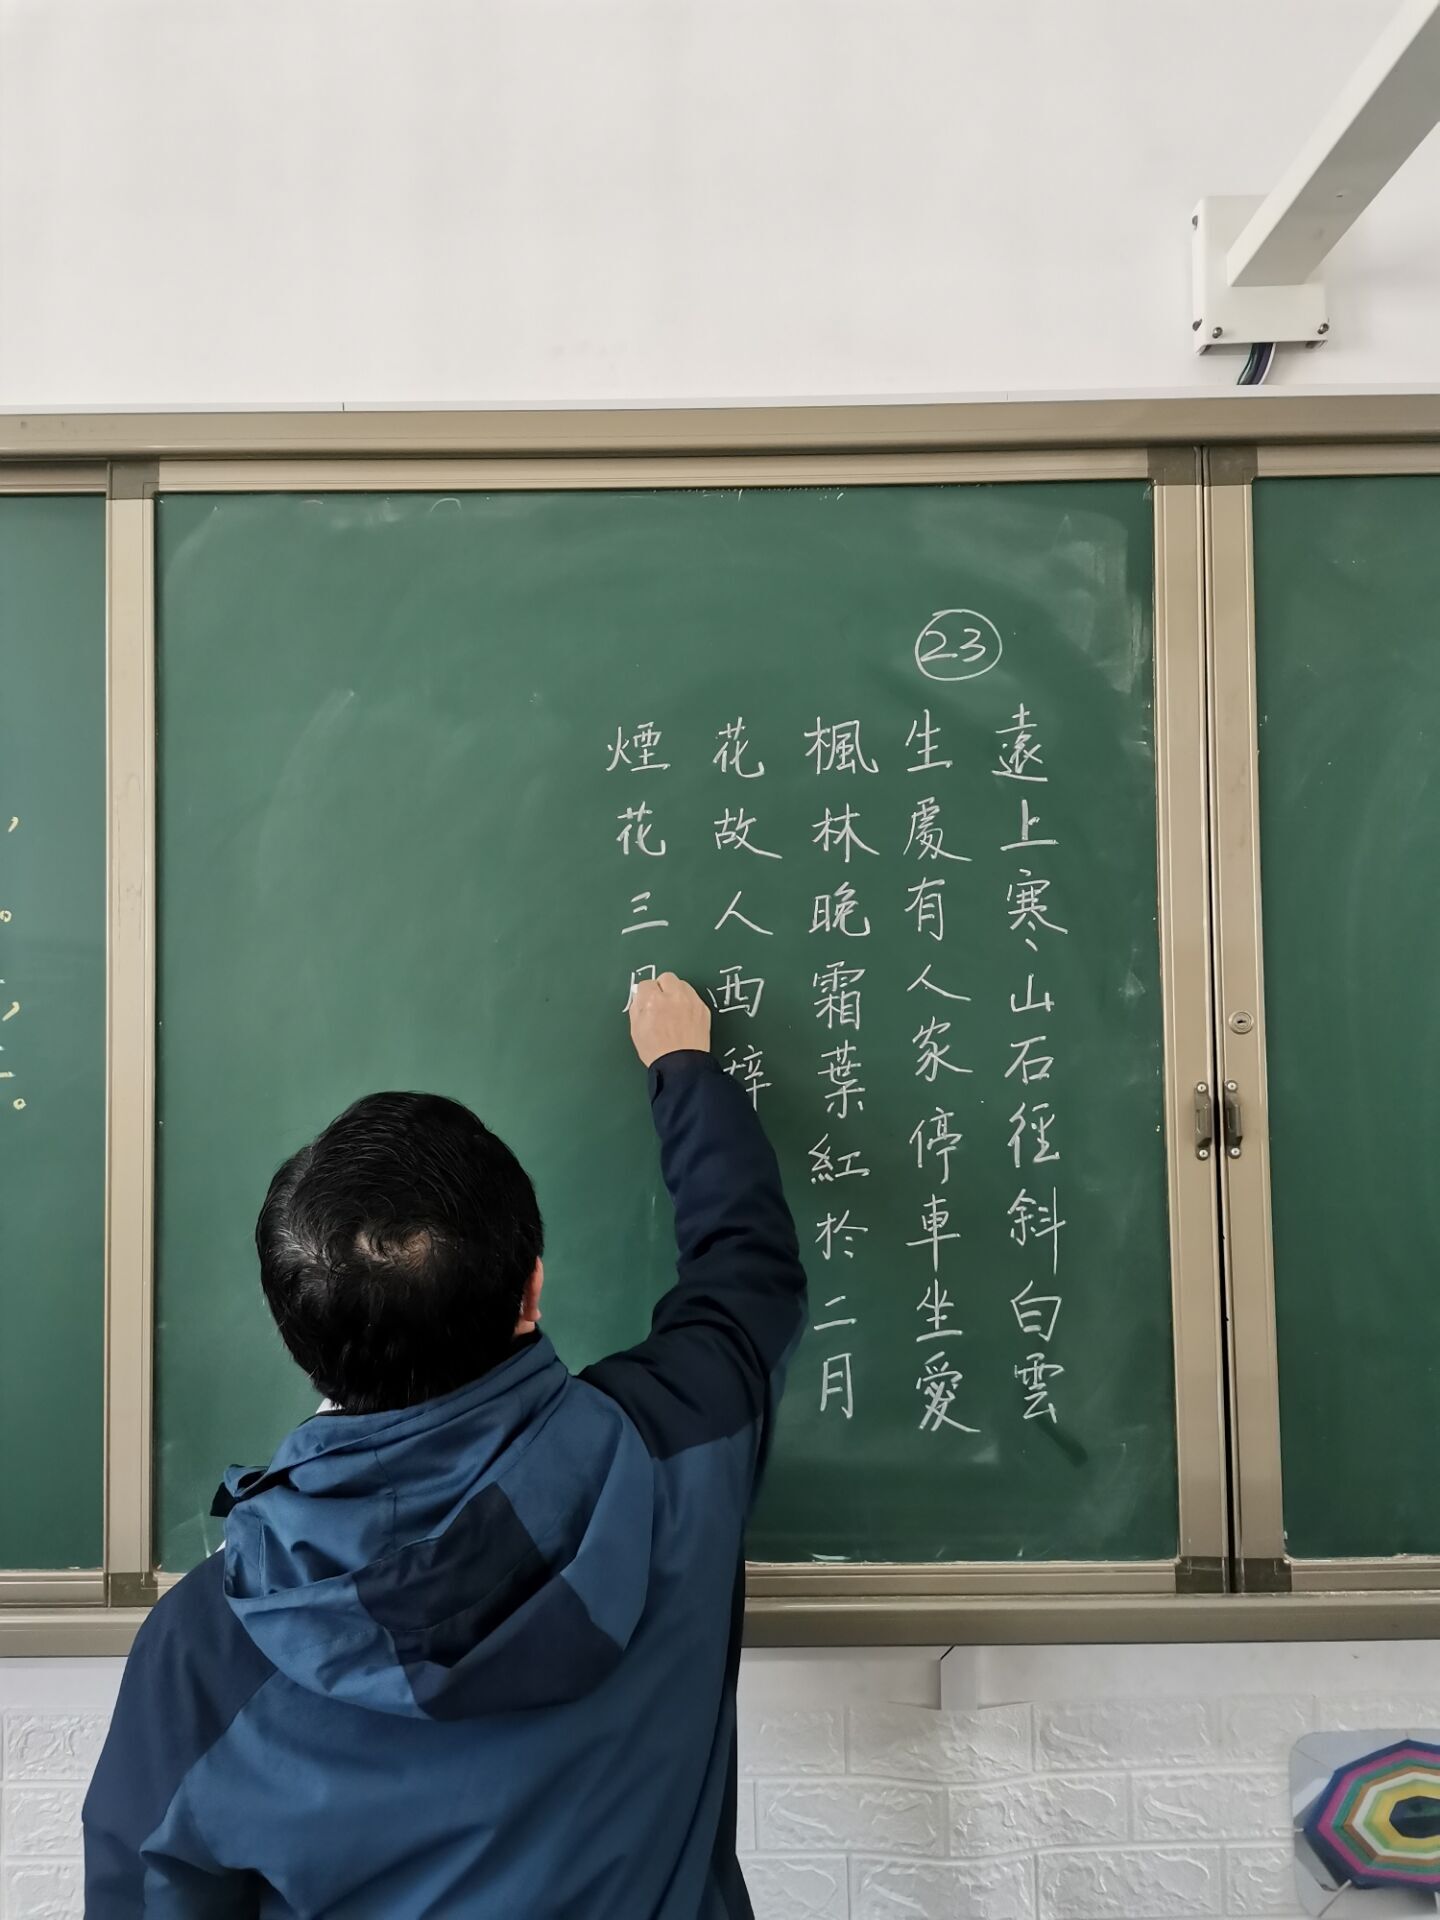 23
遠上寒山石徑斜白雲
生處有人家停車坐愛
楓林晚霜葉紅於二月
花故人西辭
煙花三月